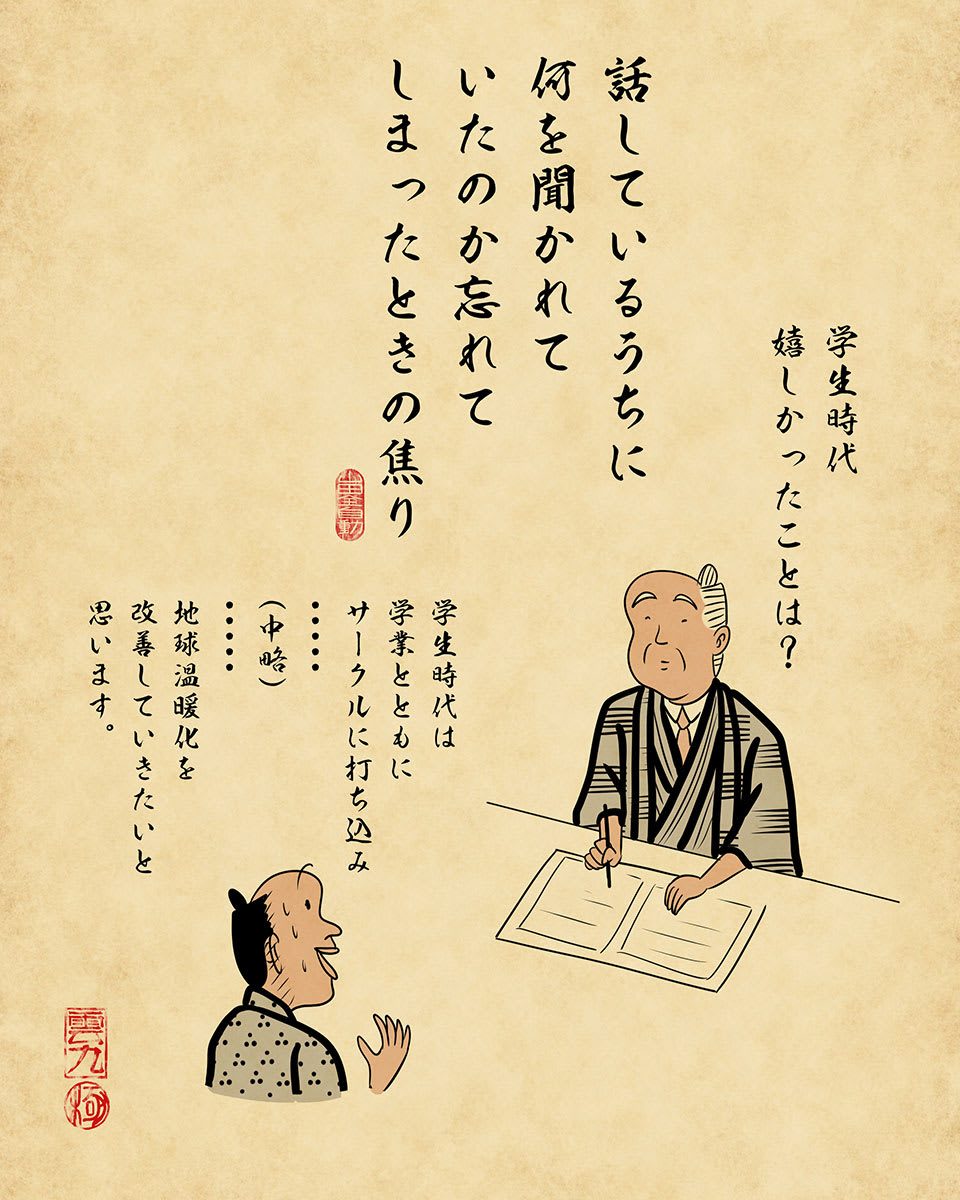 話しているうちに
何を聞かれて
いたのか忘れて
しまったときの焦り
学生時代
嬉しかったことは？
学生時代は
学業とともに
サークルに打ち込み
・・・・
(中略)
・・・・・
地球温暖化を
改善していきたいと
思います。